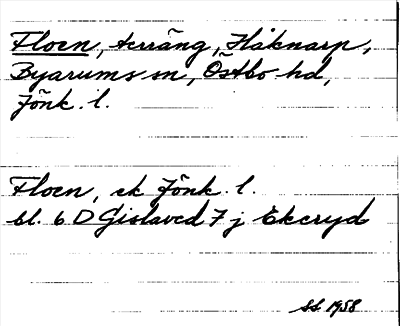 Floen, terräng, Håknarp,
Byarums sn, Östbo hd,
Jönk. l.
Floen, ek Jönk. l.
bl. 6 D Gislaved 7 j Ekeryd
SS 1958